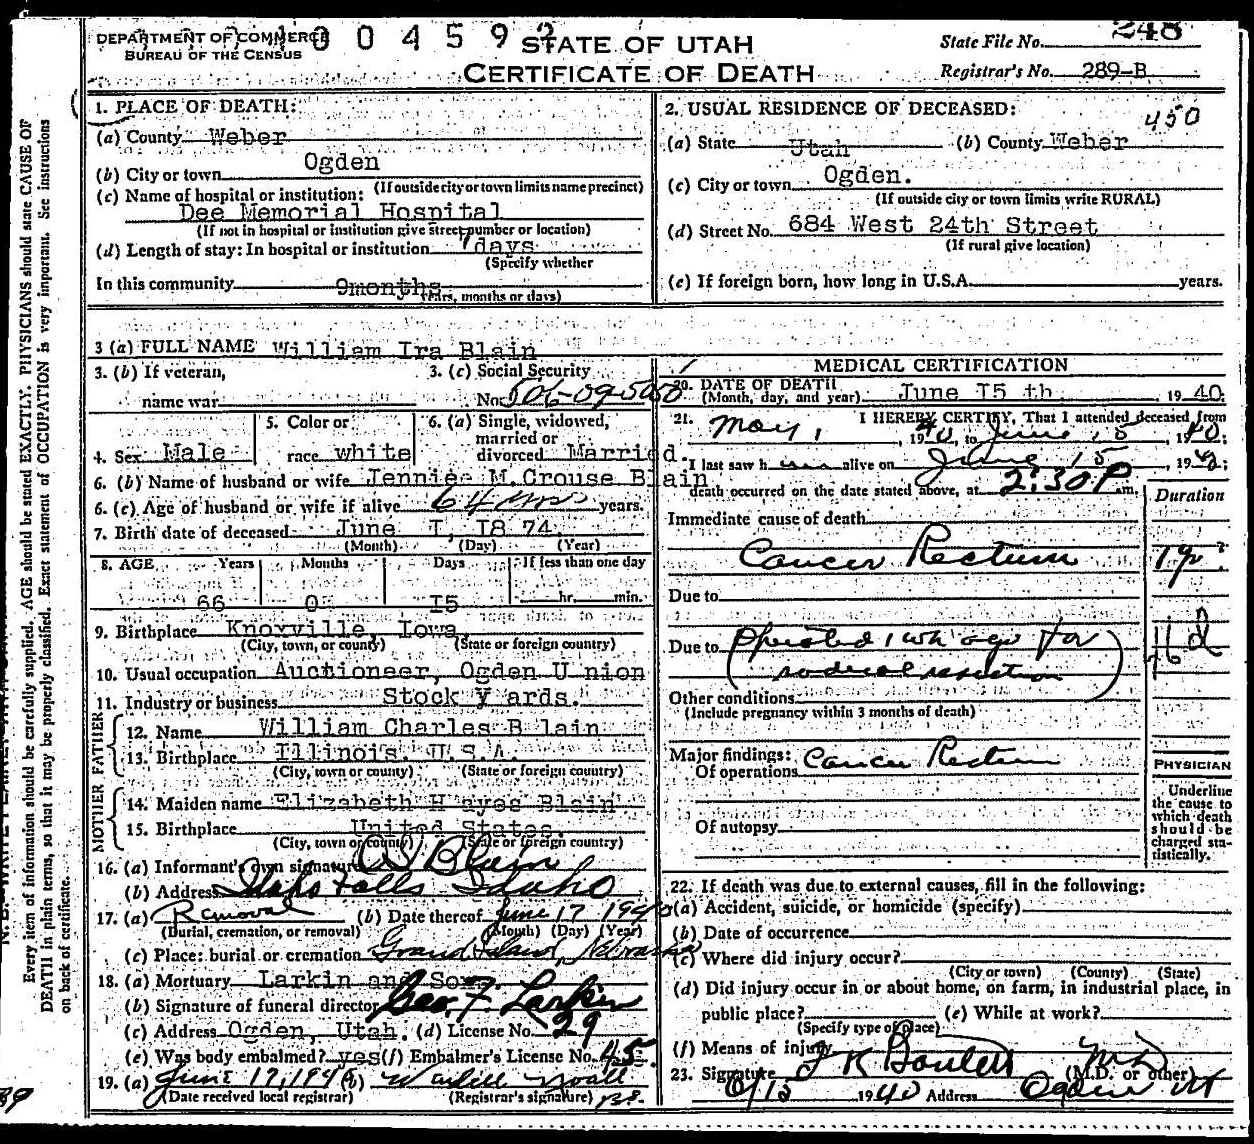 DEPARTMENT OF COMMERCE
BUREAU OF THE CENSUS
0 0 4 5 9 2
STATE OF UTAH
CERTIFICATE OF DEATH
State File No. 248
Registrar's No. 289-B
Every item of information should be carefully supplied. AGE should be stated EXACTLY. PHYSICIANS should state CAUSE OF
DEATH in plain terms, so that it may be properly classified. Exact statement of OCCUPATION is very important. See instructions
on back of certificate.
1. PLACE OF DEATH:
(a) County Weber
(b) City or town Ogden
(If outside city or town limits name precinct)
(c) Name of hospital or institution:
Dee Memorial Hospital
(If not in hospital or institution give street number or location)
(d) Length of stay: In hospital or institution 7 days
(Specify whether
In this community 9months
years, months or days)
2. USUAL RESIDENCE OF DECEASED:
450
(a) State Utah (b) County Weber
(c) City or town Ogden.
(If outside city or town limits write RURAL)
(d) Street No. 684 West 24th Street
(If rural give location)
(e) If foreign born, how long in U.S.A. years.
3 (a) FULL NAME William Ira Blain
3. (b) If veteran,
name war
3. (c) Social Security
No. 506-09-5050
4. Sex Male
5. Color or
race white
6. (a) Single, widowed,
married or
divorced Married.
6. (b) Name of husband or wife Jennie M. Crouse Blain
6. (c) Age of husband or wife if alive 64 yrs years.
7. Birth date of deceased June I, I8 74
(Month) (Day) (Year)
8. AGE Years Months Days If less than one day
66 0 I5 hr. min.
9. Birthplace Knoxville, Iowa
(City, town, or county) (State or foreign country)
10. Usual occupation Auctioneer, Ogden U nion
11. Industry or business Stock Y ards.
FATHER
12. Name William Charles B lain
13. Birthplace Illinois. U.S.A.
(City, town or county) (State or foreign country)
MOTHER
14. Maiden name Elizabeth H ayes Blain
15. Birthplace United States.
(City, town or county) (State or foreign country)
16. (a) Informant's own signature W Blain
(b) Address Idaho Falls Idaho
17. (a) Removal (b) Date thereof June 17 1940
(Burial, cremation, or removal) (Month) (Day) (Year)
(c) Place: burial or cremation Grand Island, Nebraska
18. (a) Mortuary Larkin and Sons.
(b) Signature of funeral director Geo. F. Larkin
(c) Address Ogden, Utah. (d) License No. 29
(e) Was body embalmed? yes (f) Embalmer's License No. 45.
19. (a) June 17, 1940 (b)
(Date received local registrar) (Registrar's signature)
MEDICAL CERTIFICATION
20. DATE OF DEATH
(Month, day, and year) June I5 th 19 40.
21. I HEREBY CERTIFY, That I attended deceased from
May 1, 1940, to June 15, 1940;
I last saw him alive on June 15, 1940;
death occurred on the date stated above, at 2:30 P m.
Duration
Immediate cause of death
Cancer Rectum 1 yr ?
Due to
Due to (Operated 1 wk ago for
radical resection)
Other conditions
(Include pregnancy within 3 months of death)
Major findings:
Of operations Cancer Rectum
Of autopsy
PHYSICIAN
Underline
the cause to
which death
should be
charged sta-
tistically.
22. If death was due to external causes, fill in the following:
(a) Accident, suicide, or homicide (specify)
(b) Date of occurrence
(c) Where did injury occur?
(City or town) (County) (State)
(d) Did injury occur in or about home, on farm, in industrial place, in
public place? (e) While at work?
(Specify type of place)
(f) Means of injury
23. Signature M.D.
(M.D. or other)
6/15 1940 Address Ogden Ut